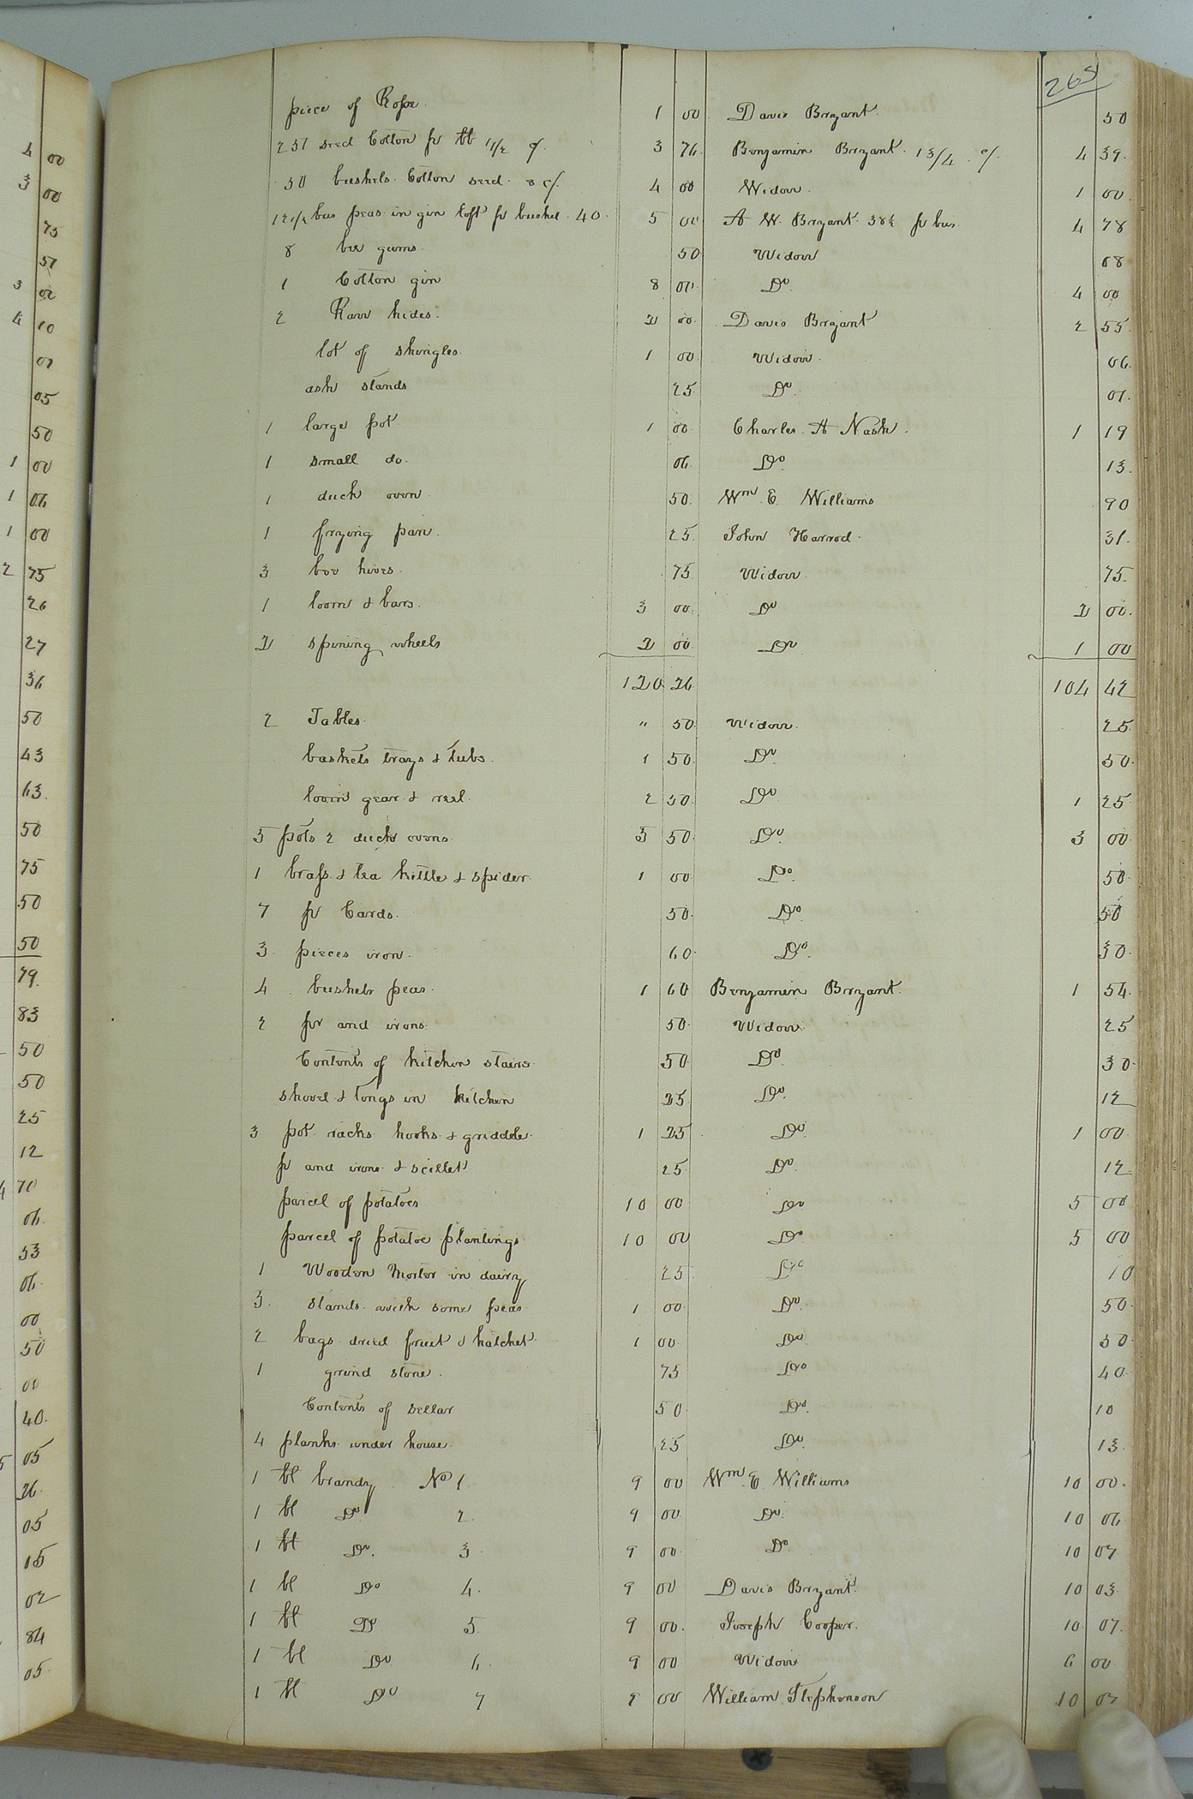 265
piece of Rope 1 00 Davis Bryant 50
251 seed Cotton pr lb 1 1/2 c/. 3 76 Benjamin Bryant 1 3/4 c/. 4 39
50 bushels Cotton seed 8 c/. 4 00 Widow 1 00
12 1/2 bus peas in gin loft pr bushel 40 5 00 A W. Bryant 38 1/4 pr bus 4 78
8 bee gums 50 Widow 68
1 Cotton gin 8 00 Do 4 00
2 Raw hides 2 00 Davis Bryant 2 55
lot of shingles 1 00 Widow 06
ash stands 25 Do 01
1 large pot 1 00 Charles A Nash 1 19
1 small do. 06 Do 13
1 duck oven 50 Wm E Williams 90
1 frying pan 25 John Harrod 31
3 bee hives 75 Widow 75
1 loom & bars 3 00 Do 2 00
2 spining wheels 2 00 Do 1 00
120 26 104 42
2 Tables " 50 Widow 25
baskets trays & tubs 1 50 Do 50
loom gear & reel 2 50 Do 1 25
5 pots 2 duck ovens 5 50 Do 3 00
1 brass & tea kittle & spider 1 00 Do 50
7 pr Cards 50 Do 50
3 pieces iron 60 Do 30
4 bushels peas 1 60 Benjamin Bryant 1 54
2 pr and irons 50 Widow 25
Contents of kitchen stairs 50 Do 30
shovel & tongs in kitchen 25 Do 12
3 pot racks hooks & griddle 1 25 Do 1 00
pr and irons & scillet 25 Do 12
parcel of potatoes 10 00 Do 5 00
parcel of potatoe plantings 10 00 Do 5 00
1 Wooden Morter in dairy 25 Do 10
3 stands with some peas 1 00 Do 50
2 bags dried fruit & hatchet 1 00 Do 50
1 grind stone 75 Do 40
Contents of sellar 50 Do 10
4 planks under house 25 Do 13
1 bl brandy No 1 9 00 Wm E Williams 10 00
1 bl Do 2 9 00 Do 10 06
1 bl Do 3 9 00 Do 10 07
1 bl Do 4 9 00 Davis Bryant 10 03
1 bl Do 5 9 00 Joseph Cooper 10 07
1 bl Do 6 9 00 Widow 6 00
1 bl Do 7 9 00 William Stephenson 10 02